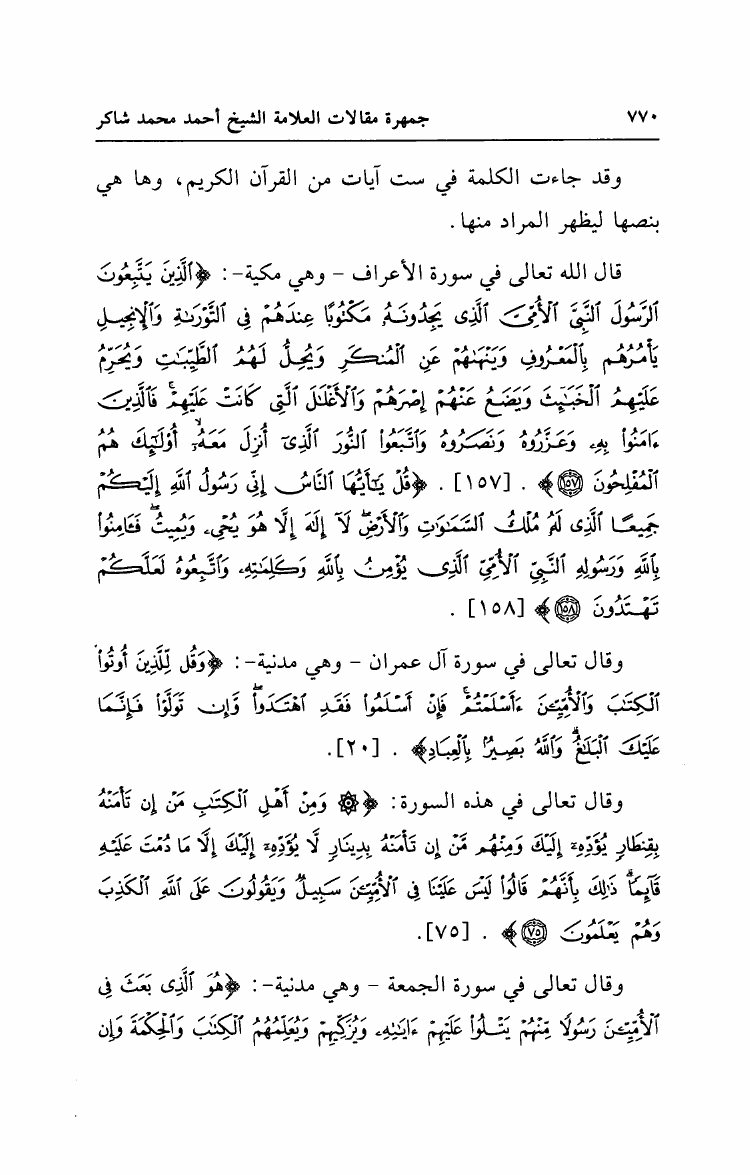 ٧٧٠ جمهرة مقالات العلامة الشيخ أحمد محمد شاكر
وقد جاءت الكلمة في ست آيات من القرآن الكريم، وها هي
بنصها ليظهر المراد منها.
قال الله تعالى في سورة الأعراف - وهي مكية-: ﴿ٱلَّذِينَ يَتَّبِعُونَ
ٱلرَّسُولَ ٱلنَّبِىَّ ٱلْأُمِّىَّ ٱلَّذِى يَجِدُونَهُۥ مَكْتُوبًا عِندَهُمْ فِى ٱلتَّوْرَىٰةِ وَٱلْإِنجِيلِ
يَأْمُرُهُم بِٱلْمَعْرُوفِ وَيَنْهَىٰهُمْ عَنِ ٱلْمُنكَرِ وَيُحِلُّ لَهُمُ ٱلطَّيِّبَـٰتِ وَيُحَرِّمُ
عَلَيْهِمُ ٱلْخَبَـٰٓئِثَ وَيَضَعُ عَنْهُمْ إِصْرَهُمْ وَٱلْأَغْلَـٰلَ ٱلَّتِى كَانَتْ عَلَيْهِمْ ۚ فَٱلَّذِينَ
ءَامَنُوا۟ بِهِۦ وَعَزَّرُوهُ وَنَصَرُوهُ وَٱتَّبَعُوا۟ ٱلنُّورَ ٱلَّذِىٓ أُنزِلَ مَعَهُۥٓ ۙ أُو۟لَـٰٓئِكَ هُمُ
ٱلْمُفْلِحُونَ ١٥٧﴾ . [١٥٧] . ﴿قُلْ يَـٰٓأَيُّهَا ٱلنَّاسُ إِنِّى رَسُولُ ٱللَّهِ إِلَيْكُمْ
جَمِيعًا ٱلَّذِى لَهُۥ مُلْكُ ٱلسَّمَـٰوَٰتِ وَٱلْأَرْضِ ۖ لَآ إِلَـٰهَ إِلَّا هُوَ يُحْىِۦ وَيُمِيتُ ۖ فَـَٔامِنُوا۟
بِٱللَّهِ وَرَسُولِهِ ٱلنَّبِىِّ ٱلْأُمِّىِّ ٱلَّذِى يُؤْمِنُ بِٱللَّهِ وَكَلِمَـٰتِهِۦ وَٱتَّبِعُوهُ لَعَلَّكُمْ
تَهْتَدُونَ ١٥٨﴾ [١٥٨] .
وقال تعالى في سورة آل عمران - وهي مدنية-: ﴿وَقُل لِّلَّذِينَ أُوتُوا۟
ٱلْكِتَـٰبَ وَٱلْأُمِّيِّـۧنَ ءَأَسْلَمْتُمْ ۚ فَإِنْ أَسْلَمُوا۟ فَقَدِ ٱهْتَدَوا۟ ۖ وَّإِن تَوَلَّوْا۟ فَإِنَّمَا
عَلَيْكَ ٱلْبَلَـٰغُ ۗ وَٱللَّهُ بَصِيرٌۢ بِٱلْعِبَادِ﴾ . [٢٠].
وقال تعالى في هذه السورة: ﴿۞ وَمِنْ أَهْلِ ٱلْكِتَـٰبِ مَنْ إِن تَأْمَنْهُ
بِقِنطَارٍ يُؤَدِّهِۦٓ إِلَيْكَ وَمِنْهُم مَّنْ إِن تَأْمَنْهُ بِدِينَارٍ لَّا يُؤَدِّهِۦٓ إِلَيْكَ إِلَّا مَا دُمْتَ عَلَيْهِ
قَآئِمًا ۗ ذَٰلِكَ بِأَنَّهُمْ قَالُوا۟ لَيْسَ عَلَيْنَا فِى ٱلْأُمِّيِّـۧنَ سَبِيلٌ وَيَقُولُونَ عَلَى ٱللَّهِ ٱلْكَذِبَ
وَهُمْ يَعْلَمُونَ ٧٥﴾ . [٧٥].
وقال تعالى في سورة الجمعة - وهي مدنية-: ﴿هُوَ ٱلَّذِى بَعَثَ فِى
ٱلْأُمِّيِّـۧنَ رَسُولًا مِّنْهُمْ يَتْلُوا۟ عَلَيْهِمْ ءَايَـٰتِهِۦ وَيُزَكِّيهِمْ وَيُعَلِّمُهُمُ ٱلْكِتَـٰبَ وَٱلْحِكْمَةَ وَإِن